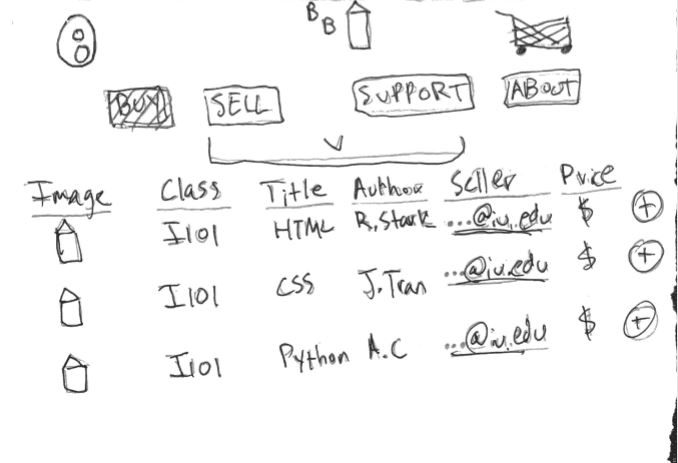 B B
BUY SELL SUPPORT ABOUT
Image Class Title Author Seller Price
I101 HTML R. Stark ...@iu.edu $ +
I101 CSS J. Tran ...@iu.edu $ +
I101 Python A.C ...@iu.edu $ +